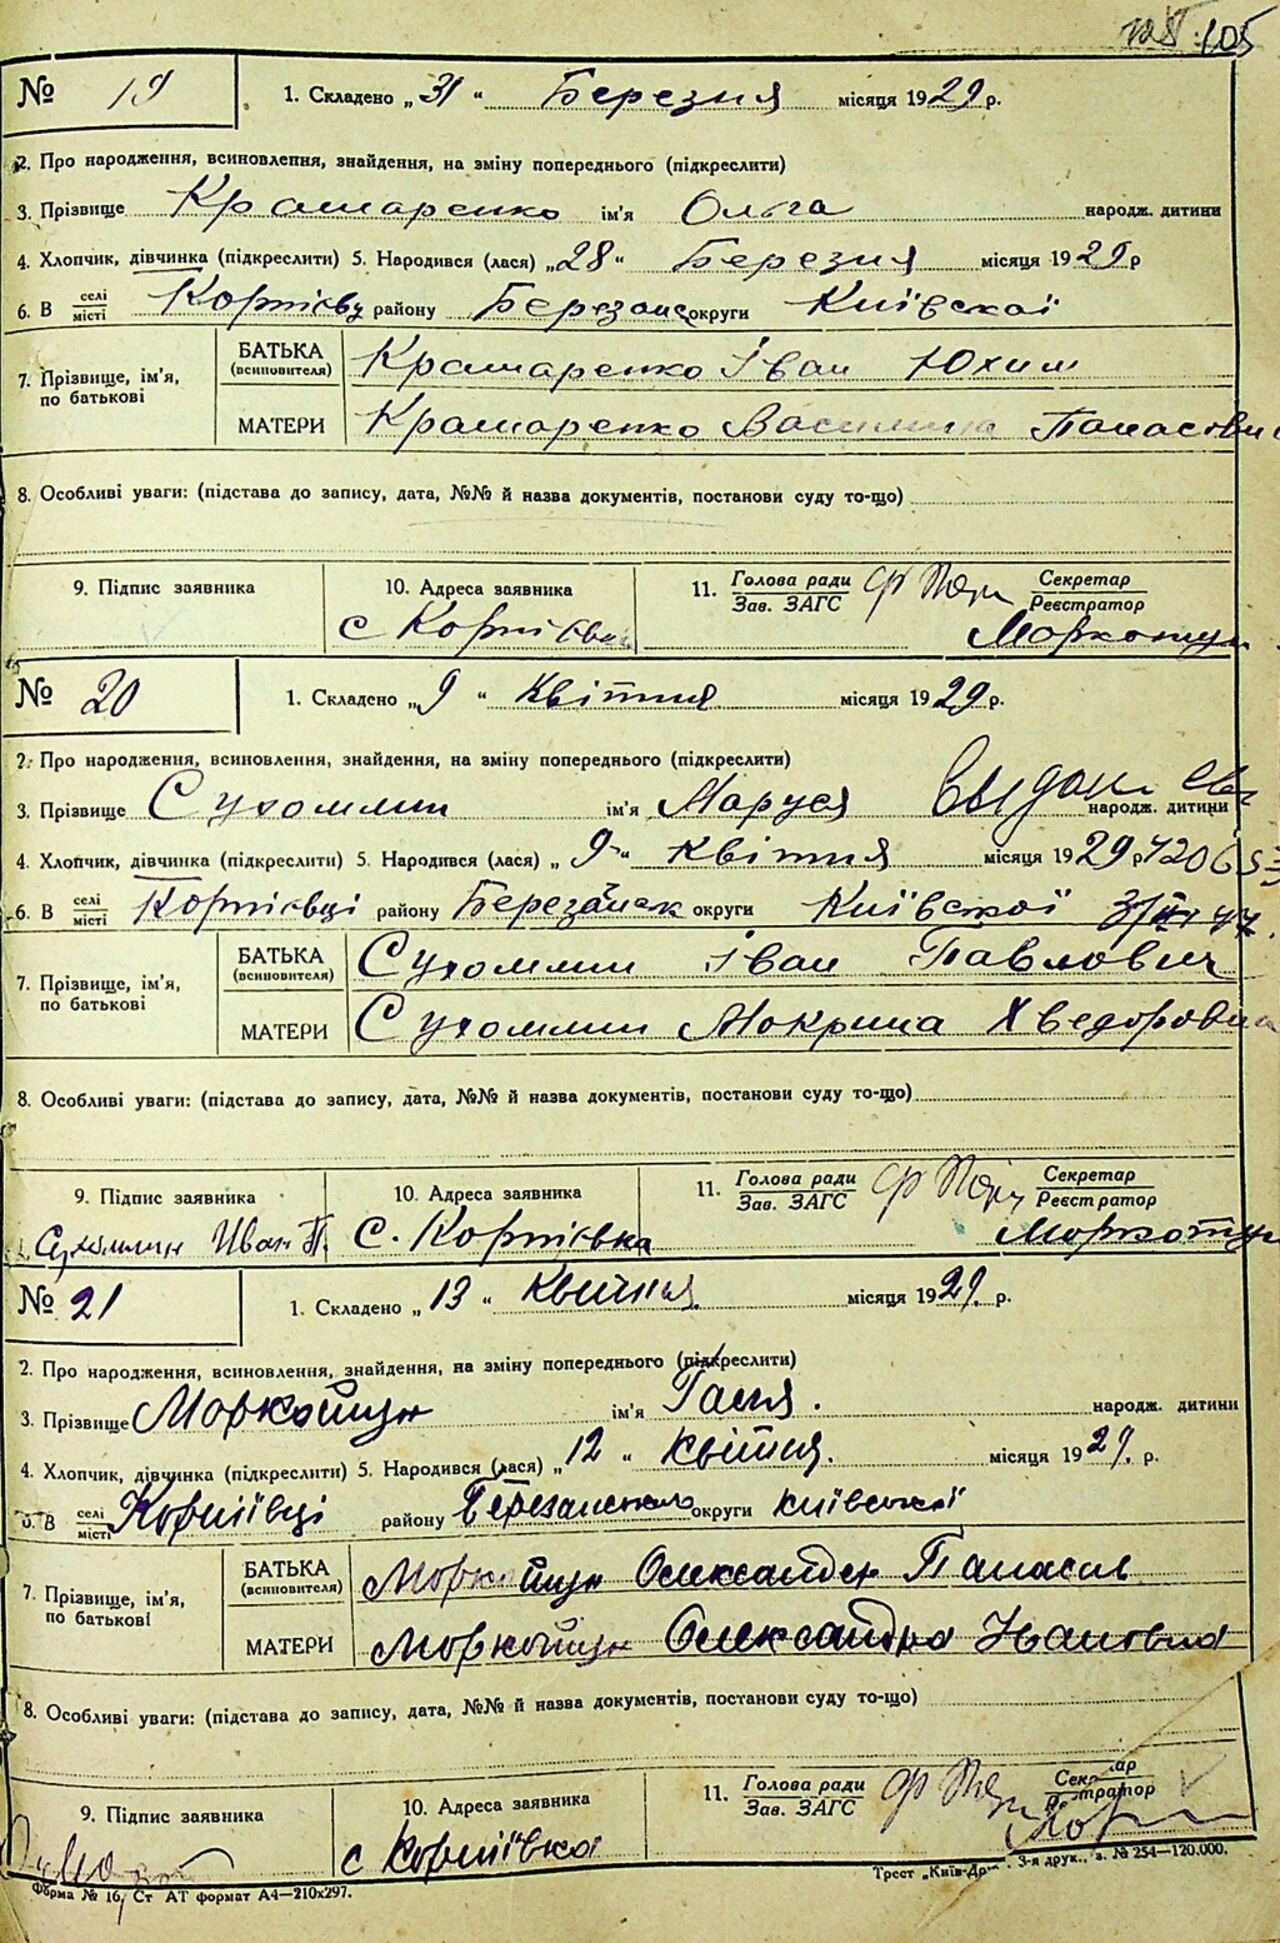 105
№ 19 1. Складено „31" Березня місяця 1929 р.
2. Про народження, всиновлення, знайдення, на зміну попереднього (підкреслити)
3. Прізвище Крамаренко ім'я Ольга народж. дитини
4. Хлопчик, дівчинка (підкреслити) 5. Народився (лася) „28" Березня місяця 1929 р
6. В селі місті району Березанс округи Київскої
7. Прізвище, ім'я, по батькові БАТЬКА (всиновителя) Крамаренко Іван Юхим
МАТЕРИ Крамаренко Василина Панасовн
8. Особливі уваги: (підстава до запису, дата, №№ й назва документів, постанови суду то-що)
9. Підпис заявника 10. Адреса заявника 11. Голова ради Зав. ЗАГС Секретар Реєстратор
с Моркотун
№ 20 1. Складено „9" Квітня місяця 1929 р.
2. Про народження, всиновлення, знайдення, на зміну попереднього (підкреслити)
3. Прізвище Сухомлин ім'я Маруся народж. дитини
4. Хлопчик, дівчинка (підкреслити) 5. Народився (лася) „9" Квітня місяця 1929 р
6. В селі місті Корніївці району Березанск округи Київської
7. Прізвище, ім'я, по батькові БАТЬКА (всиновителя) Сухомлин Іван Павлович
МАТЕРИ Сухомлин Мокрина Хведоровна
8. Особливі уваги: (підстава до запису, дата, №№ й назва документів, постанови суду то-що)
9. Підпис заявника 10. Адреса заявника 11. Голова ради Зав. ЗАГС Секретар Реєстратор
Сухомлин Иван П. С. Корнієвка Моркотун
№ 21 1. Складено „13" Квітня місяця 1929. р.
2. Про народження, всиновлення, знайдення, на зміну попереднього (підкреслити)
3. Прізвище Моркотун ім'я Ганя. народж. дитини
4. Хлопчик, дівчинка (підкреслити) 5. Народився (лася) „12" Квітня. місяця 1929. р.
6. В селі місті Корніївці району Березанського округи київської
7. Прізвище, ім'я, по батькові БАТЬКА (всиновителя) Моркотун Олександер Панасов
МАТЕРИ Моркотун Олександра Івановна
8. Особливі уваги: (підстава до запису, дата, №№ й назва документів, постанови суду то-що)
9. Підпис заявника 10. Адреса заявника 11. Голова ради Зав. ЗАГС
с Корніївка
Форма № 16, Ст АТ формат А4—210х297. Трест „Київ-Дру 3-я друк., з. № 254—120.000.